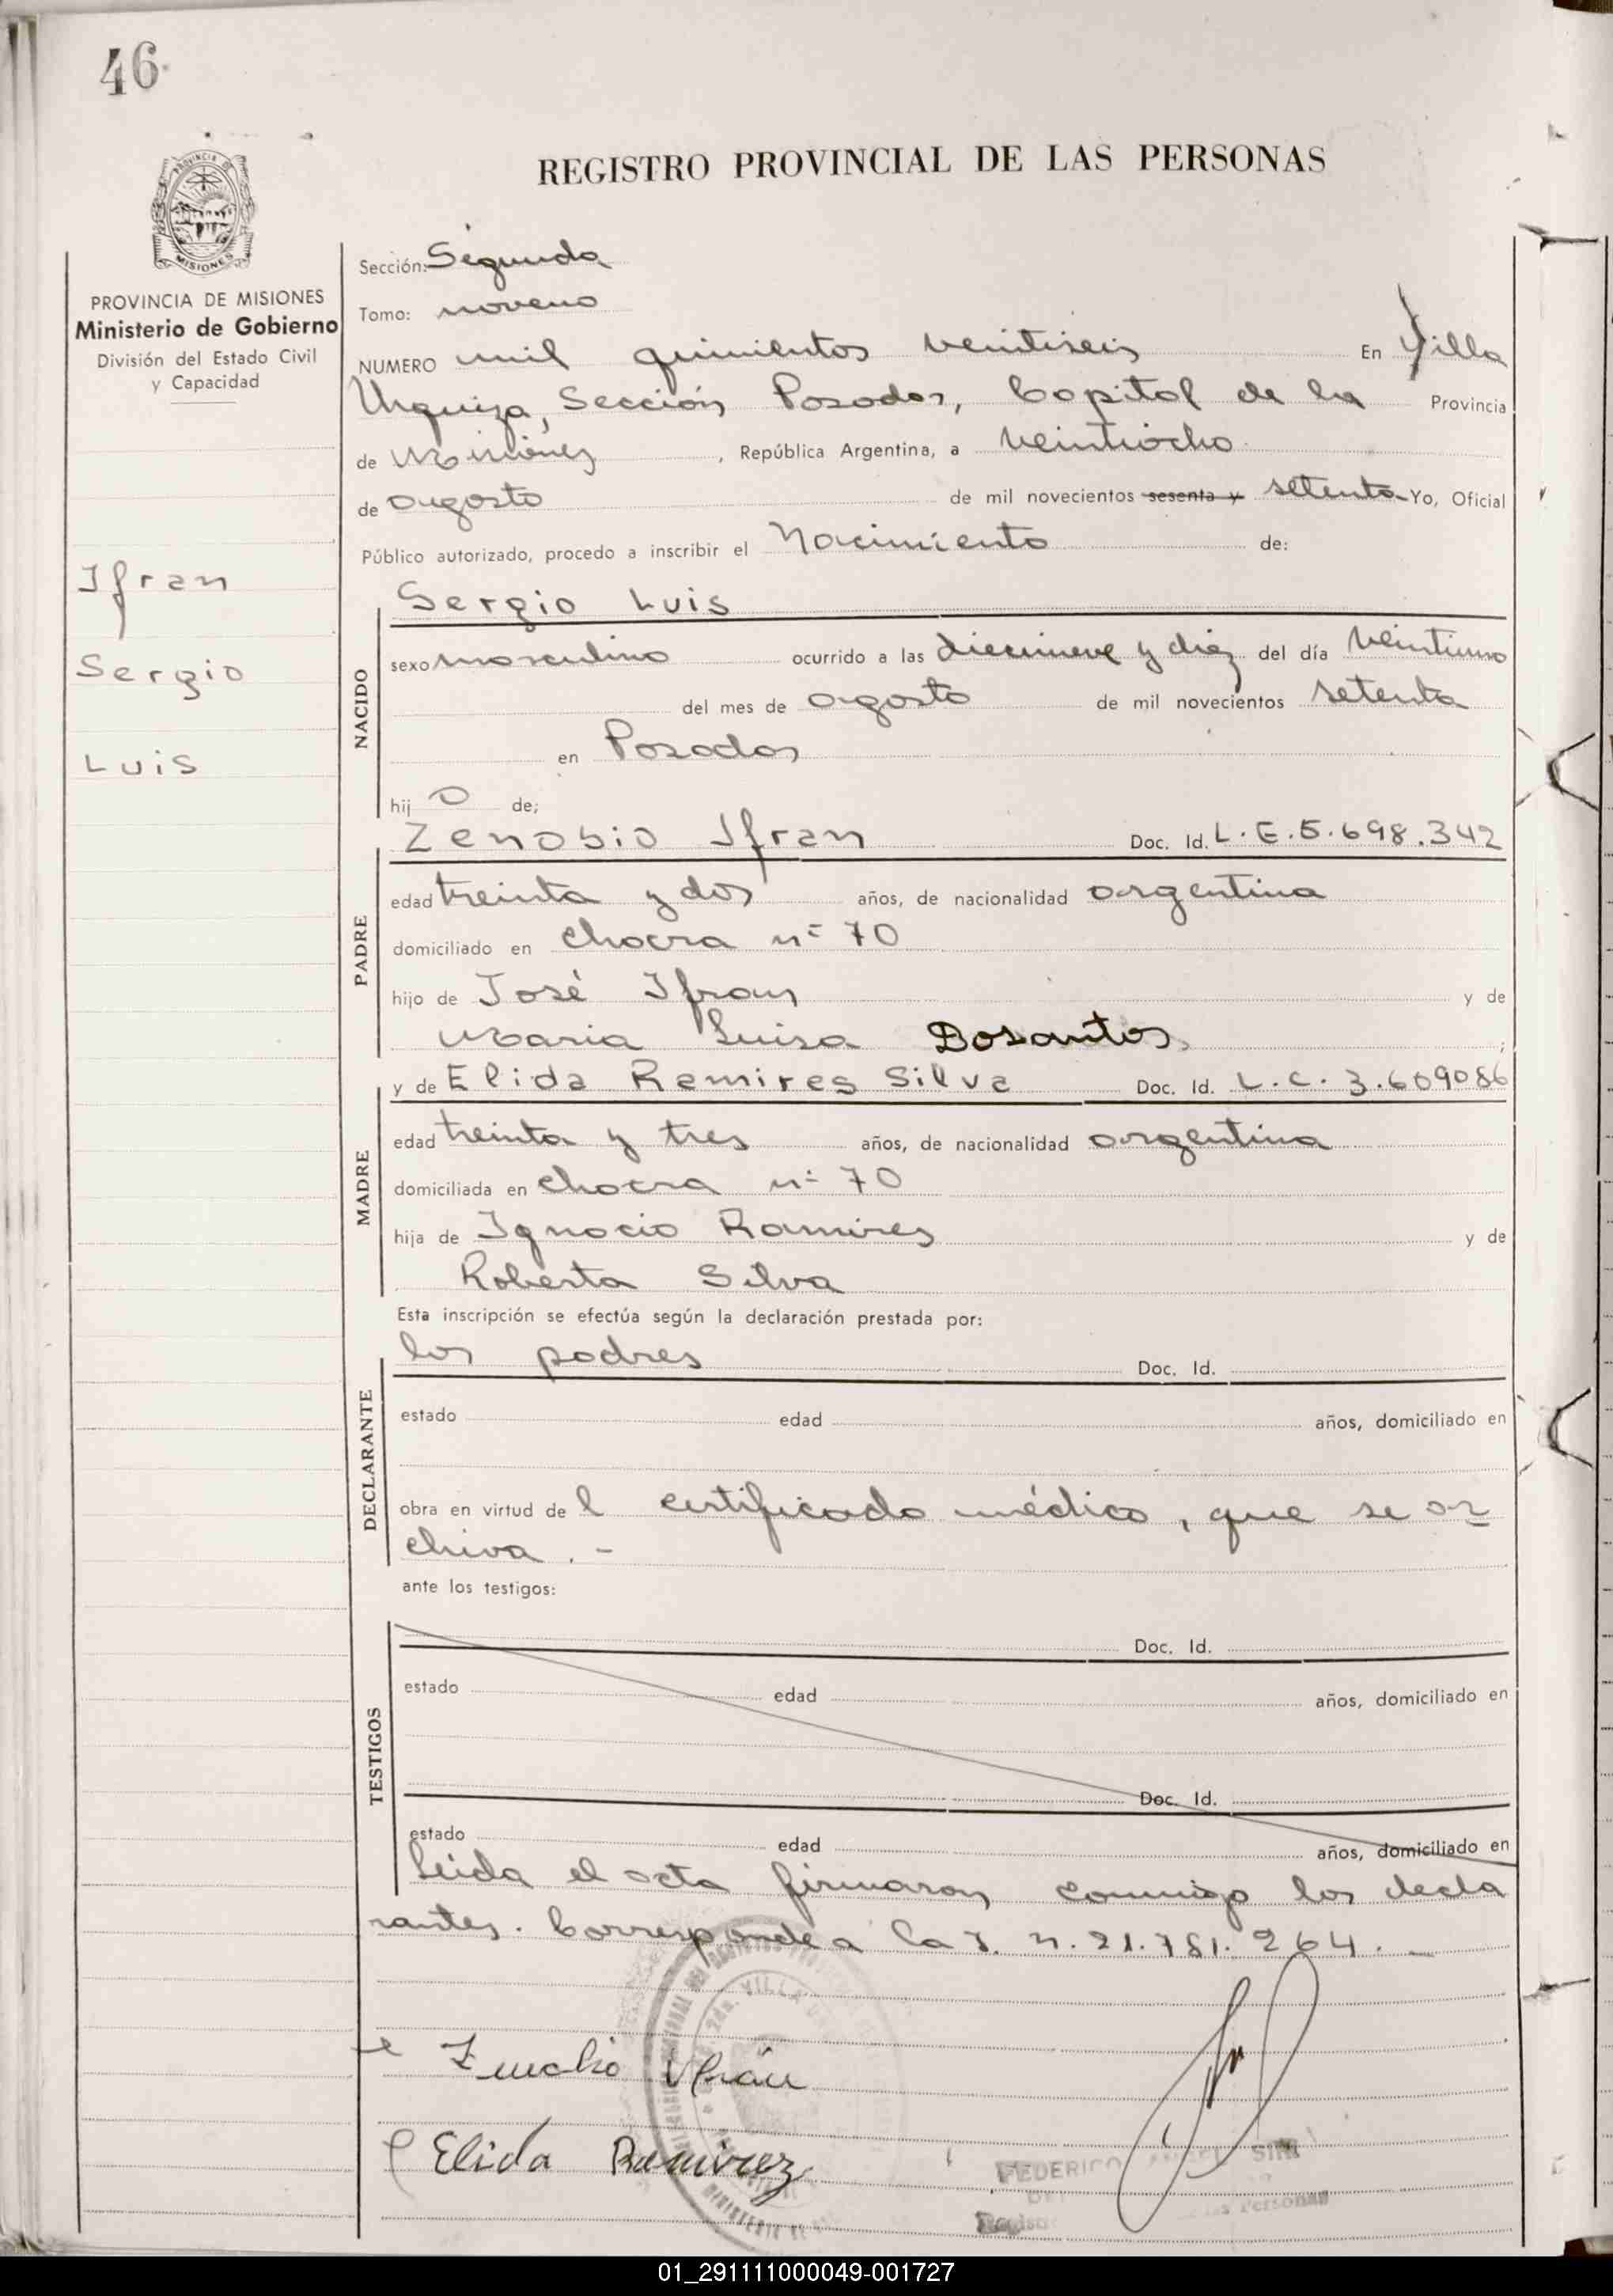 46
REGISTRO PROVINCIAL DE LAS PERSONAS
PROVINCIA DE MISIONES
Ministerio de Gobierno
División del Estado Civil
y Capacidad
Ifran
Sergio
Luis
Sección: Segunda
Tomo: noveno
NUMERO mil quinientos veintiseis En Villa
Urquiza, Sección Posadas, Capital de la Provincia
de Misiones, República Argentina, a veintiocho
de agosto de mil novecientos sesenta y setenta Yo, Oficial
Público autorizado, procedo a inscribir el Nacimiento de:
Sergio Luis
NACIDO
sexo masculino ocurrido a las diecinueve y diez del día veintiuno
del mes de agosto de mil novecientos setenta
en Posadas
hij o de;
Zenobio Ifran Doc. Id. L.E.5.698.342
PADRE
edad treinta y dos años, de nacionalidad argentina
domiciliado en chacra nº 70
hijo de José Ifran y de
Maria Luisa Dosantos ;
y de Elida Ramires Silva Doc. Id. L.C. 3.609086
MADRE
edad treinta y tres años, de nacionalidad argentina
domiciliada en chacra nº 70
hija de Ignacio Ramires y de
Roberta Silva
Esta inscripción se efectúa según la declaración prestada por:
los padres Doc. Id.
DECLARANTE
estado edad años, domiciliado en
obra en virtud de l certificado médico, que se ar
chiva . -
ante los testigos:
Doc. Id.
TESTIGOS
estado edad años, domiciliado en
Doc. Id.
estado edad años, domiciliado en
Leida el acta firmaron conmigo los decla
rantes. Corresponde a la I. n. 21.781.264. -
Elida Ramirez
FEDERICO
01_291111000049-001727